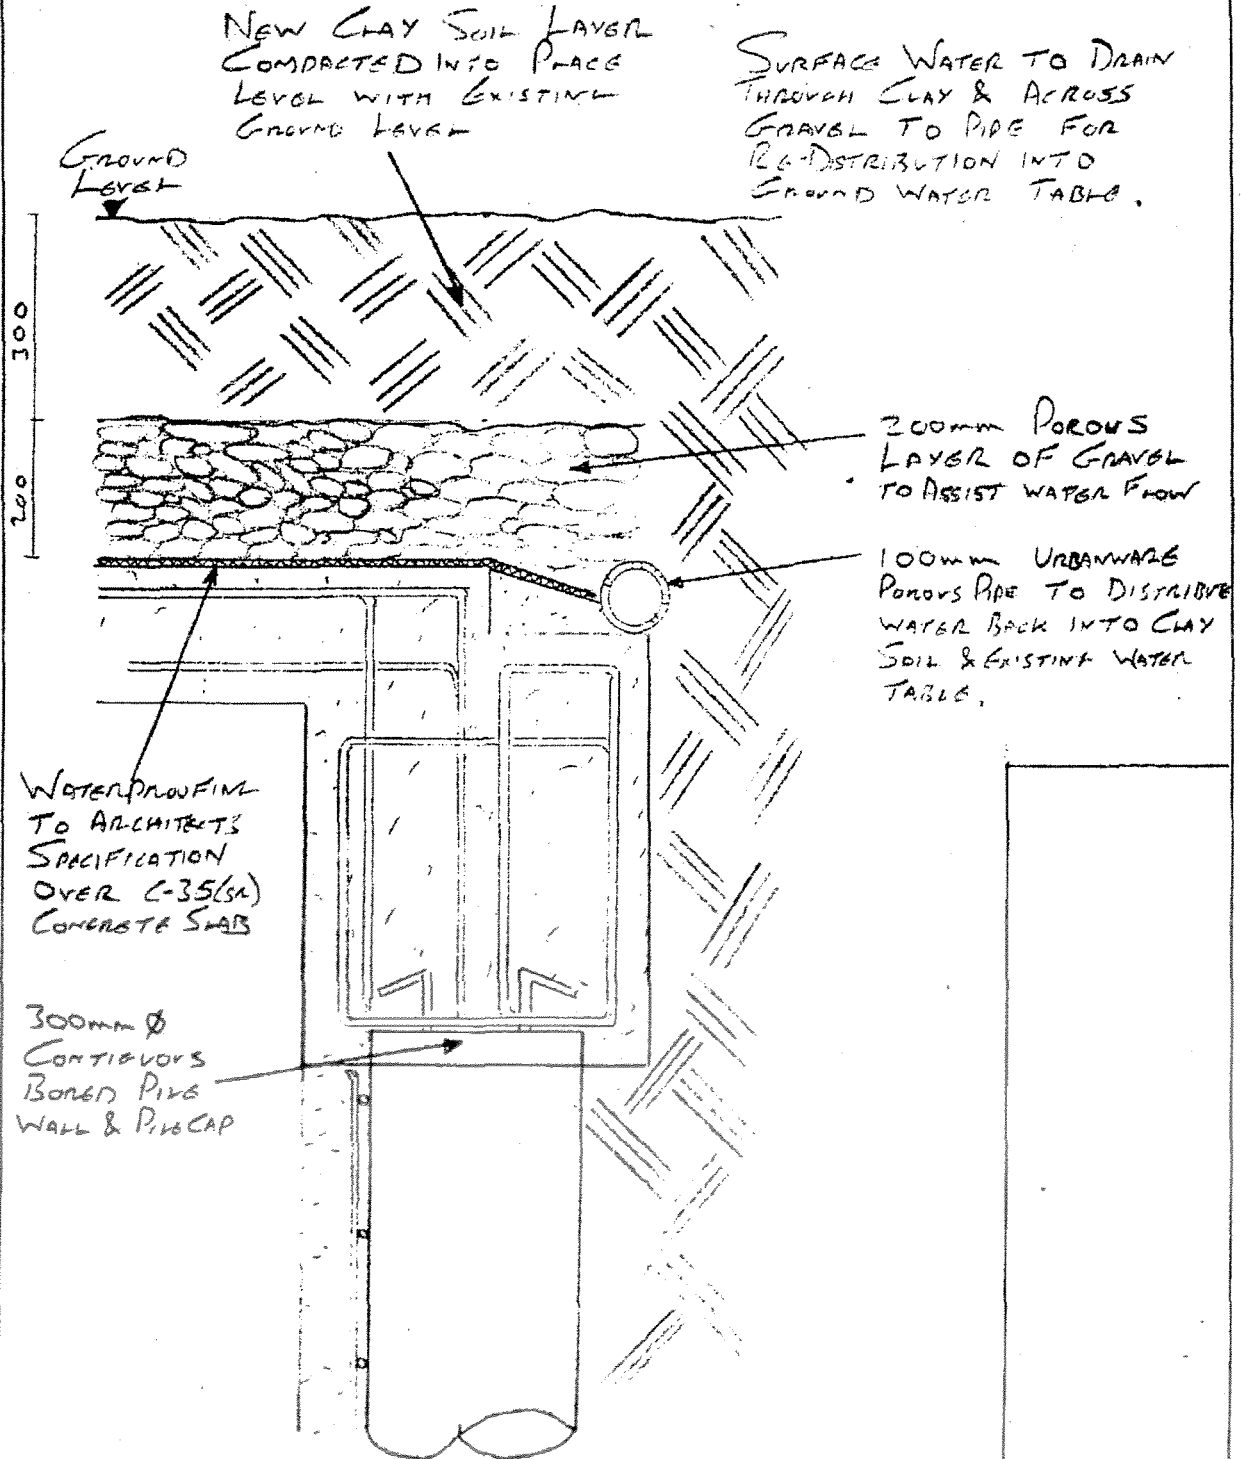 NEW CLAY SOIL LAYER
COMPACTED INTO PLACE
LEVEL WITH EXISTING
GROUND LEVEL
SURFACE WATER TO DRAIN
THROUGH CLAY & ACROSS
GRAVEL TO PIPE FOR
RE-DISTRIBUTION INTO
GROUND WATER TABLE.
GROUND
LEVEL
300
200
200mm POROUS
LAYER OF GRAVEL
TO ASSIST WATER FLOW
100mm URBANWARE
POROUS PIPE TO DISTRIBUTE
WATER BACK INTO CLAY
SOIL & EXISTING WATER
TABLE.
WATERPROOFING
TO ARCHITECTS
SPECIFICATION
OVER C-35(SR)
CONCRETE SLAB
300mm Ø
CONTIGUOUS
BORED PILE
WALL & PILE CAP